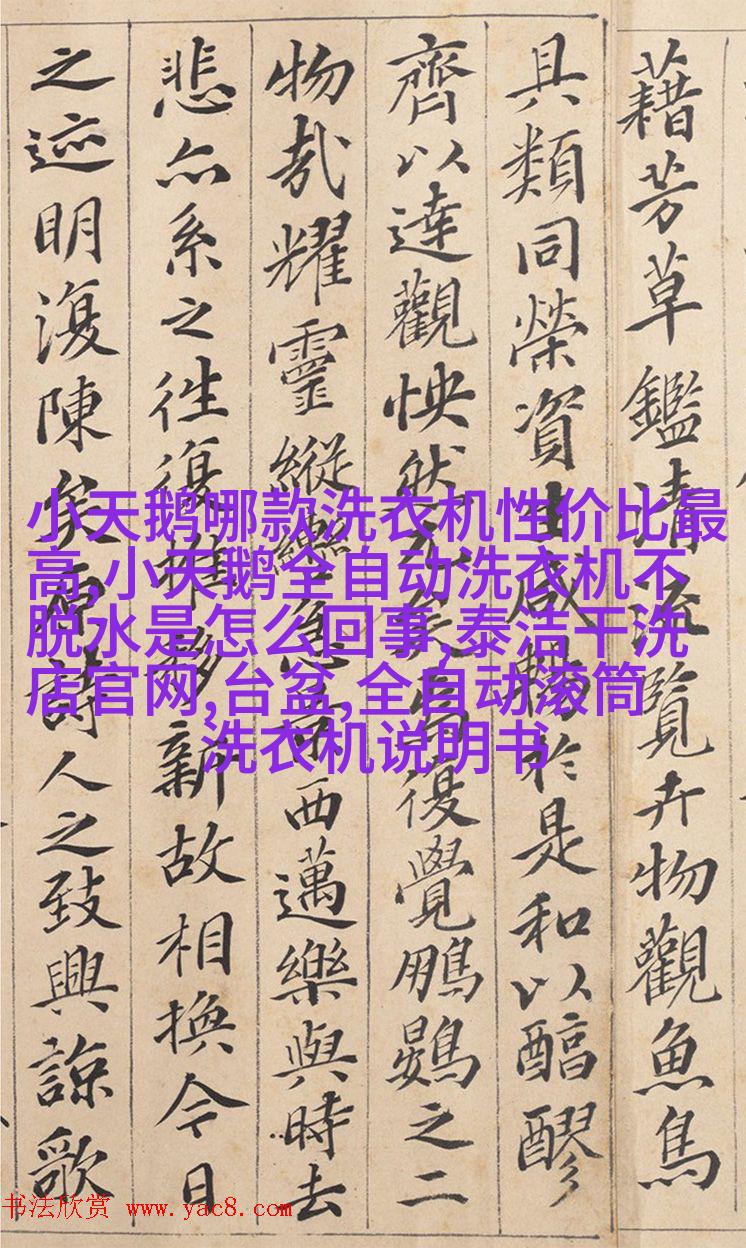 藉芳草鑑清流覽卉物觀魚鳥
具類同榮資生咸暢於是和以醕醪
齊以達觀怏然兀矣復覺鵬鷃之二
物哉耀靈縱轡急景西邁樂與時去
悲亦系之徃復推移新故相換今日
之迹明復陳矣原詩人之致興諒歌
小天鹅哪款洗衣机性价比最
高,小天鹅全自动洗衣机不
脱水是怎么回事,泰洁干洗
店官网,台盆,全自动滚筒
洗衣机说明书
书法欣赏 www.yac8.com